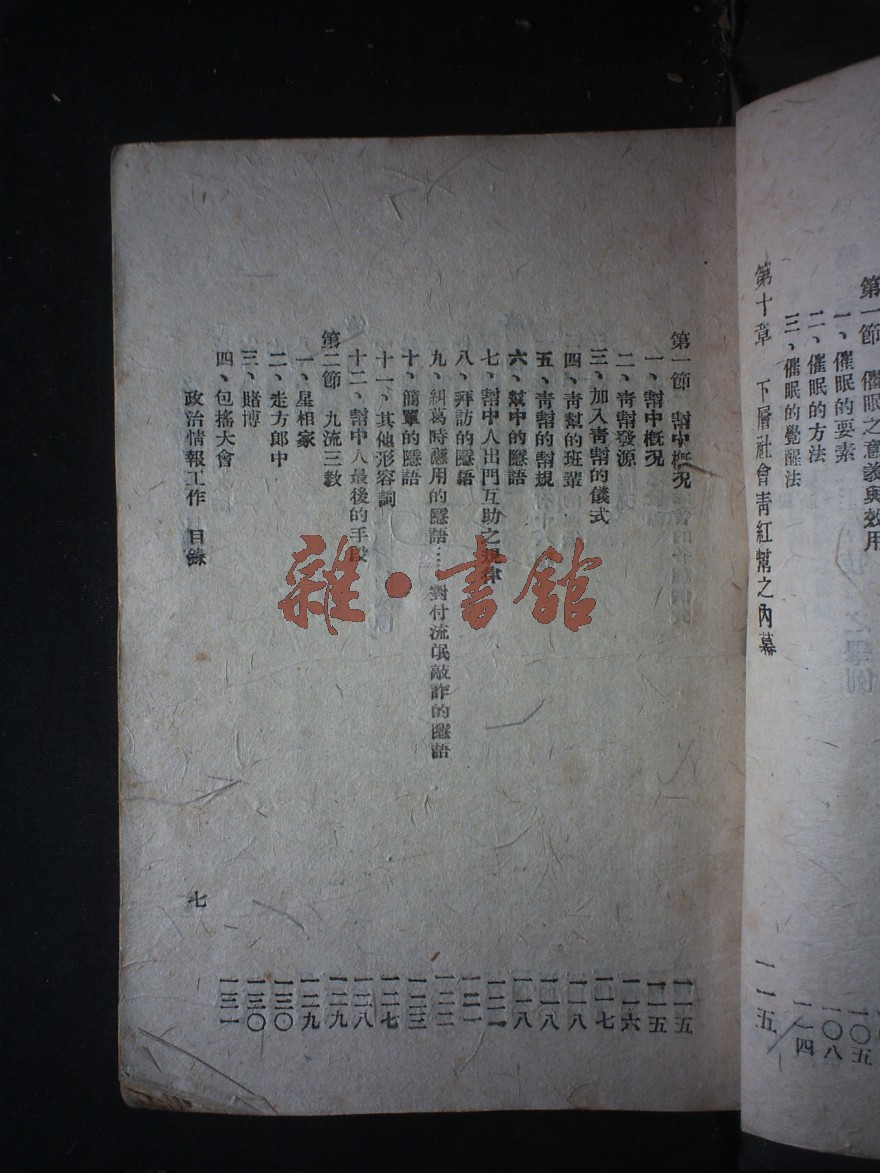 第一節 催眠之意義與效用
一、催眠的要素 一〇五
二、催眠的方法 一〇八
三、催眠的覺醒法 一一四
第十章 下層社會青紅幫之內幕 一一五
第一節 幫中概況 一一五
一、幫中概況 一一五
二、青幫發源 一一六
三、加入青幫的儀式 一一七
四、青幫的班輩 一一八
五、青幫的幫規 一一八
六、幫中的隱語 一一八
七、幫中人出門互助之規律 一二一
八、拜訪的隱語 一二一
九、糾葛時應用的隱語……對付流氓敲詐的隱語 一二二
十、簡單的隱語 一二三
十一、其他形容詞 一二七
十二、幫中人最後的手段 一二八
第二節 九流三教 一二九
一、星相家 一二九
二、走方郎中 一三〇
三、賭博 一三〇
四、包搖大會 一三一
政治情報工作 目錄
七
雜·書館